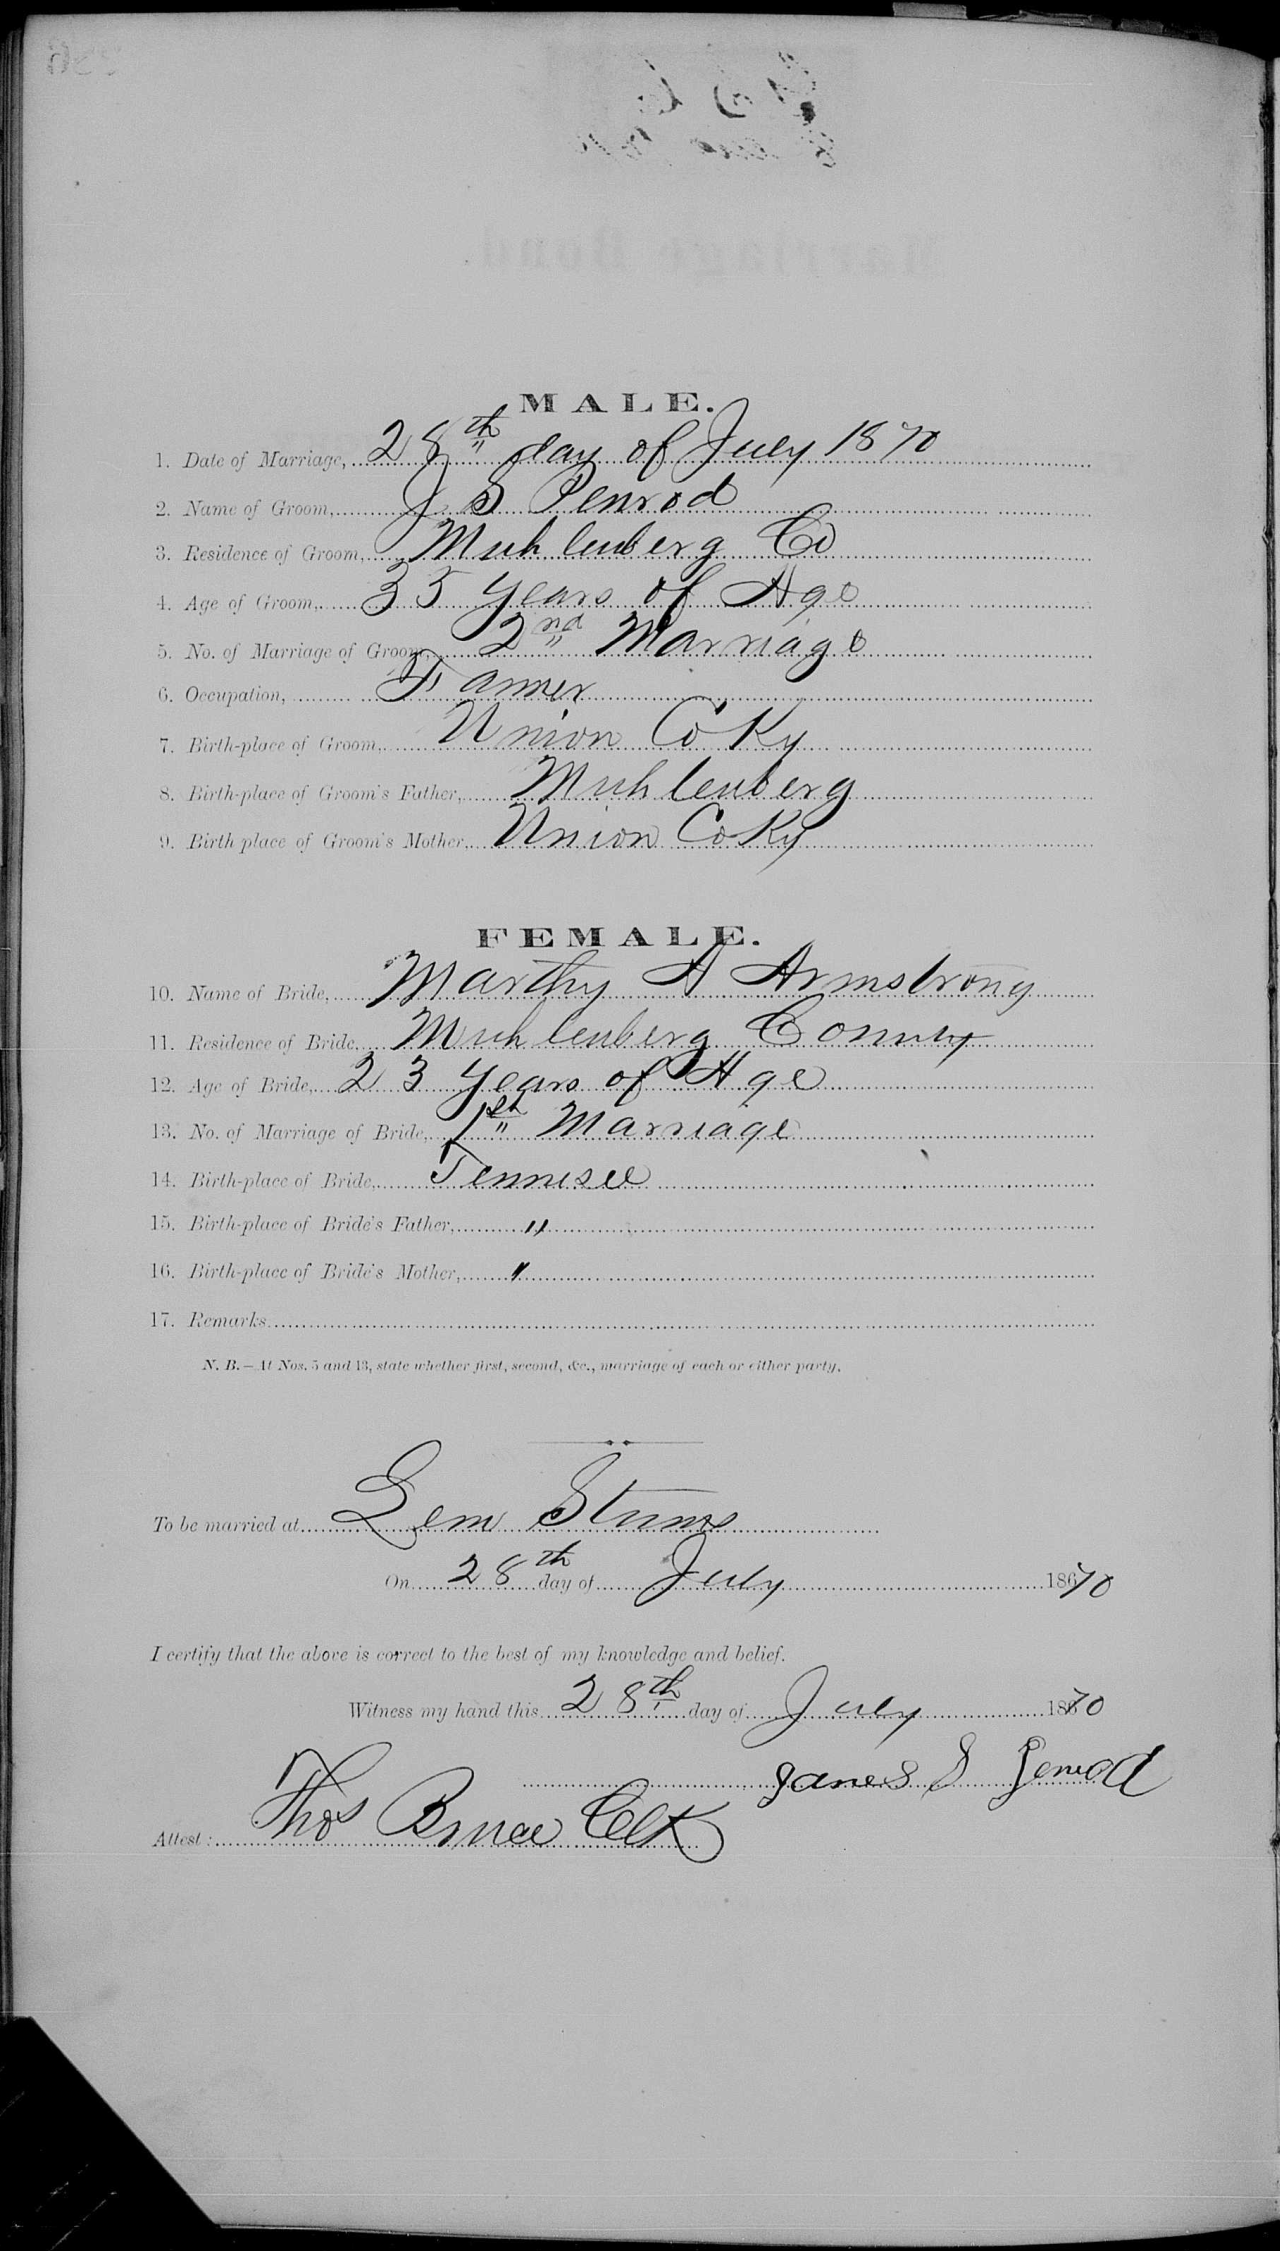 MALE.
1. Date of Marriage, 28th day of July 1870
2. Name of Groom, J S Penrod
3. Residence of Groom, Muhlenberg Co
4. Age of Groom, 35 years of Age
5. No. of Marriage of Groom, 2nd Marriage
6. Occupation, Farmer
7. Birth-place of Groom, Union Co Ky
8. Birth-place of Groom's Father, Muhlenberg
9. Birth place of Groom's Mother, Union Co Ky
FEMALE.
10. Name of Bride, Marthy A Armstrong
11. Residence of Bride, Muhlenberg County
12. Age of Bride, 23 years of Age
13. No. of Marriage of Bride, 1st Marriage
14. Birth-place of Bride, Tennisee
15. Birth-place of Bride's Father, "
16. Birth-place of Bride's Mother, "
17. Remarks
N. B.—At Nos. 5 and 13, state whether first, second, &c., marriage of each or either party.
To be married at Lem Stums
On 28th day of July 1870
I certify that the above is correct to the best of my knowledge and belief.
Witness my hand this 28th day of July 1870
James S Penrod
Attest: Thos Bruce Clk